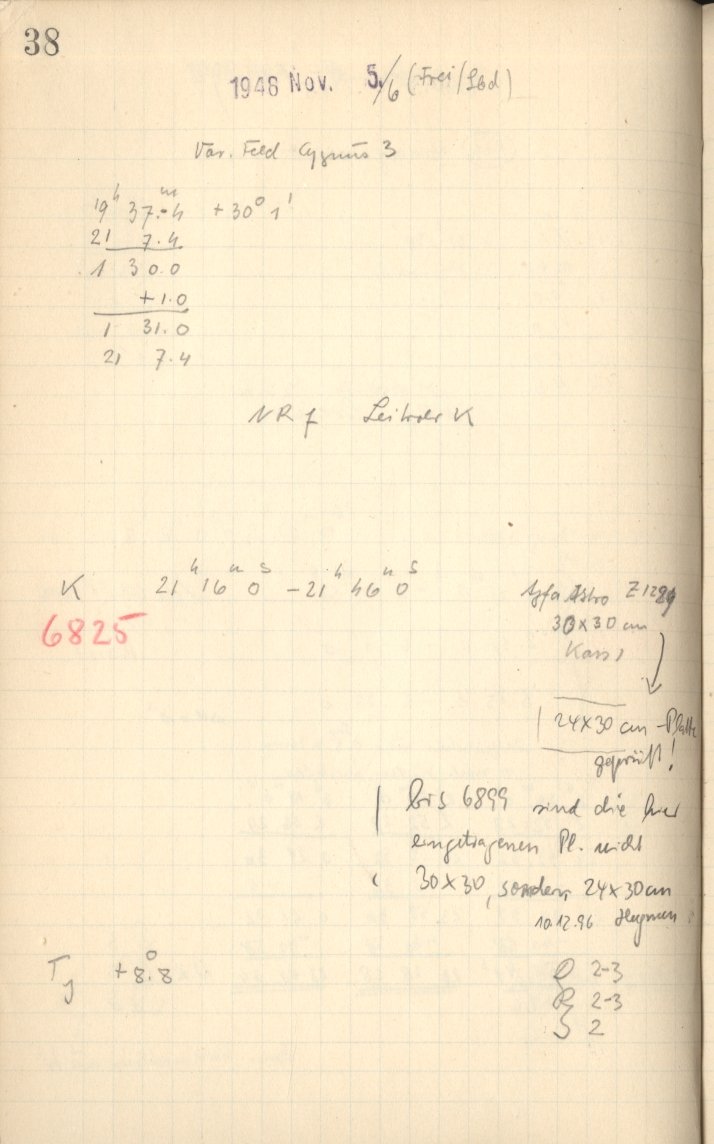 38
1948 Nov. 5./6 (Frei/Sbd)
Var. Feld Cygnus 3
19h 37.m4 +30° 1'
21 7.4
1 30.0
+1.0
1 31.0
21 7.4
NR f K
K 21h 16m 0s – 21h 46m 0s
6825
Agfa Astro Z1289
30x30 cm
Kass1
24x30 cm-Platte
geprüft!
bis 6899 sind die hier
eingetragenen Pl. nicht
30x30, sondern 24x30cm
10.12.96
T +8.°8
2-3
R 2-3
S 2